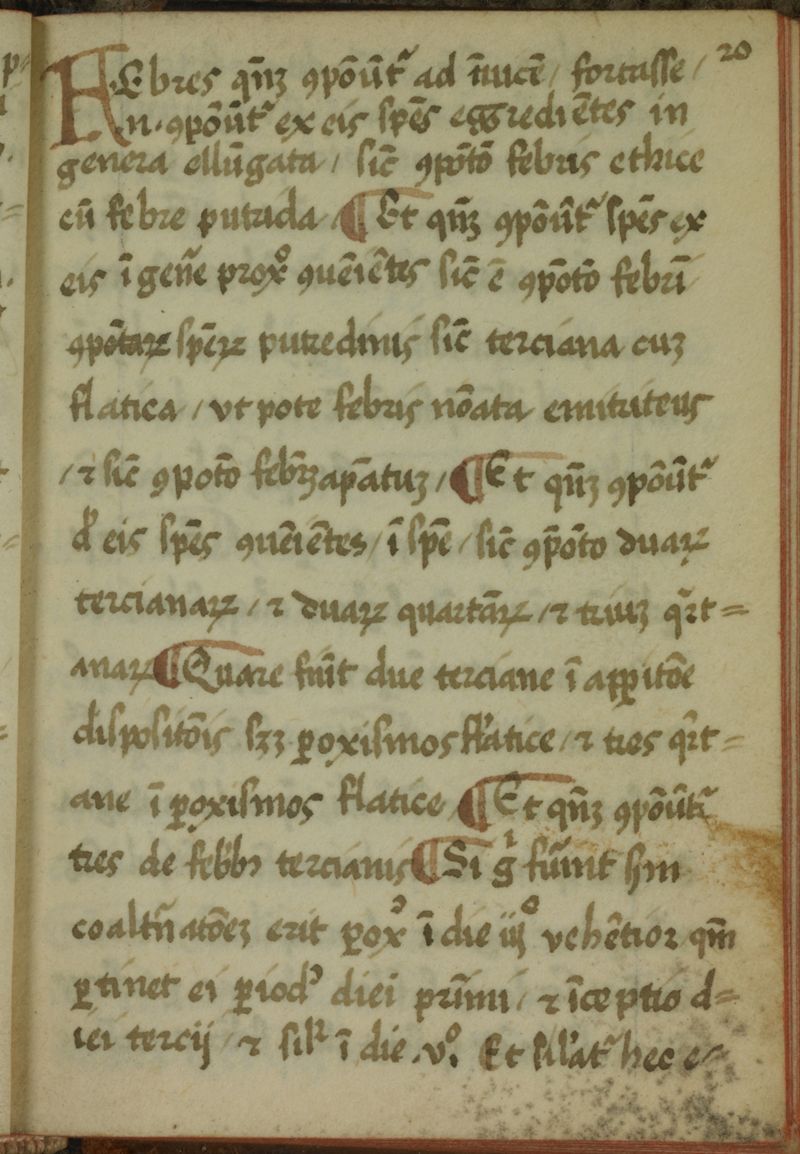 20
FEbres qn̄ꝫ ꝯpōūt᷑ ad īuicē / fortasse /
n̄ · ꝯpōūt᷑ ex eis spēs eggrediētes in
genera ellūgata / sic̄ ꝯpōtō febris ethice
cū febre putrida ¶ Et qn̄ꝫ ꝯpōūt᷑ spēs ex
eis ī gen̄e prox̊ ꝯuēiētes sic̄ ē ꝯpōtō febrī
ꝯpōtaꝝ spēꝝ putredinis sic̄ terciana cuꝫ
flatica / vt pote febris nōata emitriteus
/ ⁊ sic̄ ꝯpotō febrꝫ apātuꝫ / ¶ Et qn̄ꝫ ꝯpōūt᷑
d̓ eis spēs ꝯuēiētes / ī spē / sic̄ ꝯpōto duaꝝ
tercianaꝝ / ⁊ duaꝝ quartāꝝ / ⁊ triuꝫ qr̄t=
anaꝝ ¶ Quare fūīt due terciane ī aꝑꝑitōe
dispositōis sꝫꝫ ꝑoxismos flatice / ⁊ tres qr̄t=
ane ī ꝑoxismos flatice / ¶ Et qn̄ꝫ ꝯpōūt᷑
tres de feb̓b᷒ tercianis ¶ Si gͥ fūint hm
coaltn̄atōeꝫ erit ꝑox̊ ī die iijͦ vehētior qm̄
ꝑtinet ei ꝑiodꝰ diei prīmi / ⁊ īceptio d=
iei tercij / ⁊ silr̄ ī die .vͦ. Et sil̓at᷑ hec e=